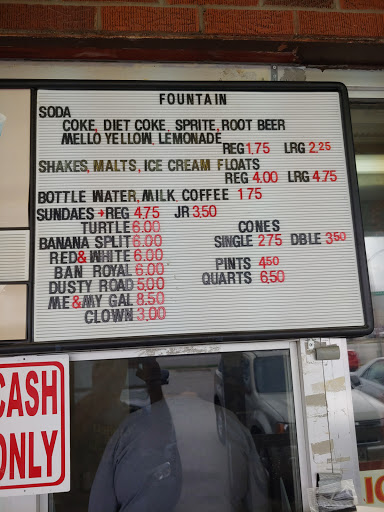 FOUNTAIN
SODA
COKE, DIET COKE, SPRITE, ROOT BEER
MELLO YELLOW, LEMONADE
REG 1.75 LRG 2.25
SHAKES, MALTS, ICE CREAM FLOATS
REG 4.00 LRG 4.75
BOTTLE WATER, MILK, COFFEE 1.75
SUNDAES → REG 4.75 JR 3.50
TURTLE 6.00 CONES
BANANA SPLIT 6.00 SINGLE 2.75 DBLE 3.50
RED & WHITE 6.00
BAN ROYAL 6.00 PINTS 4.50
DUSTY ROAD 5.00 QUARTS 6.50
ME & MY GAL 8.50
CLOWN 3.00
CASH
ONLY